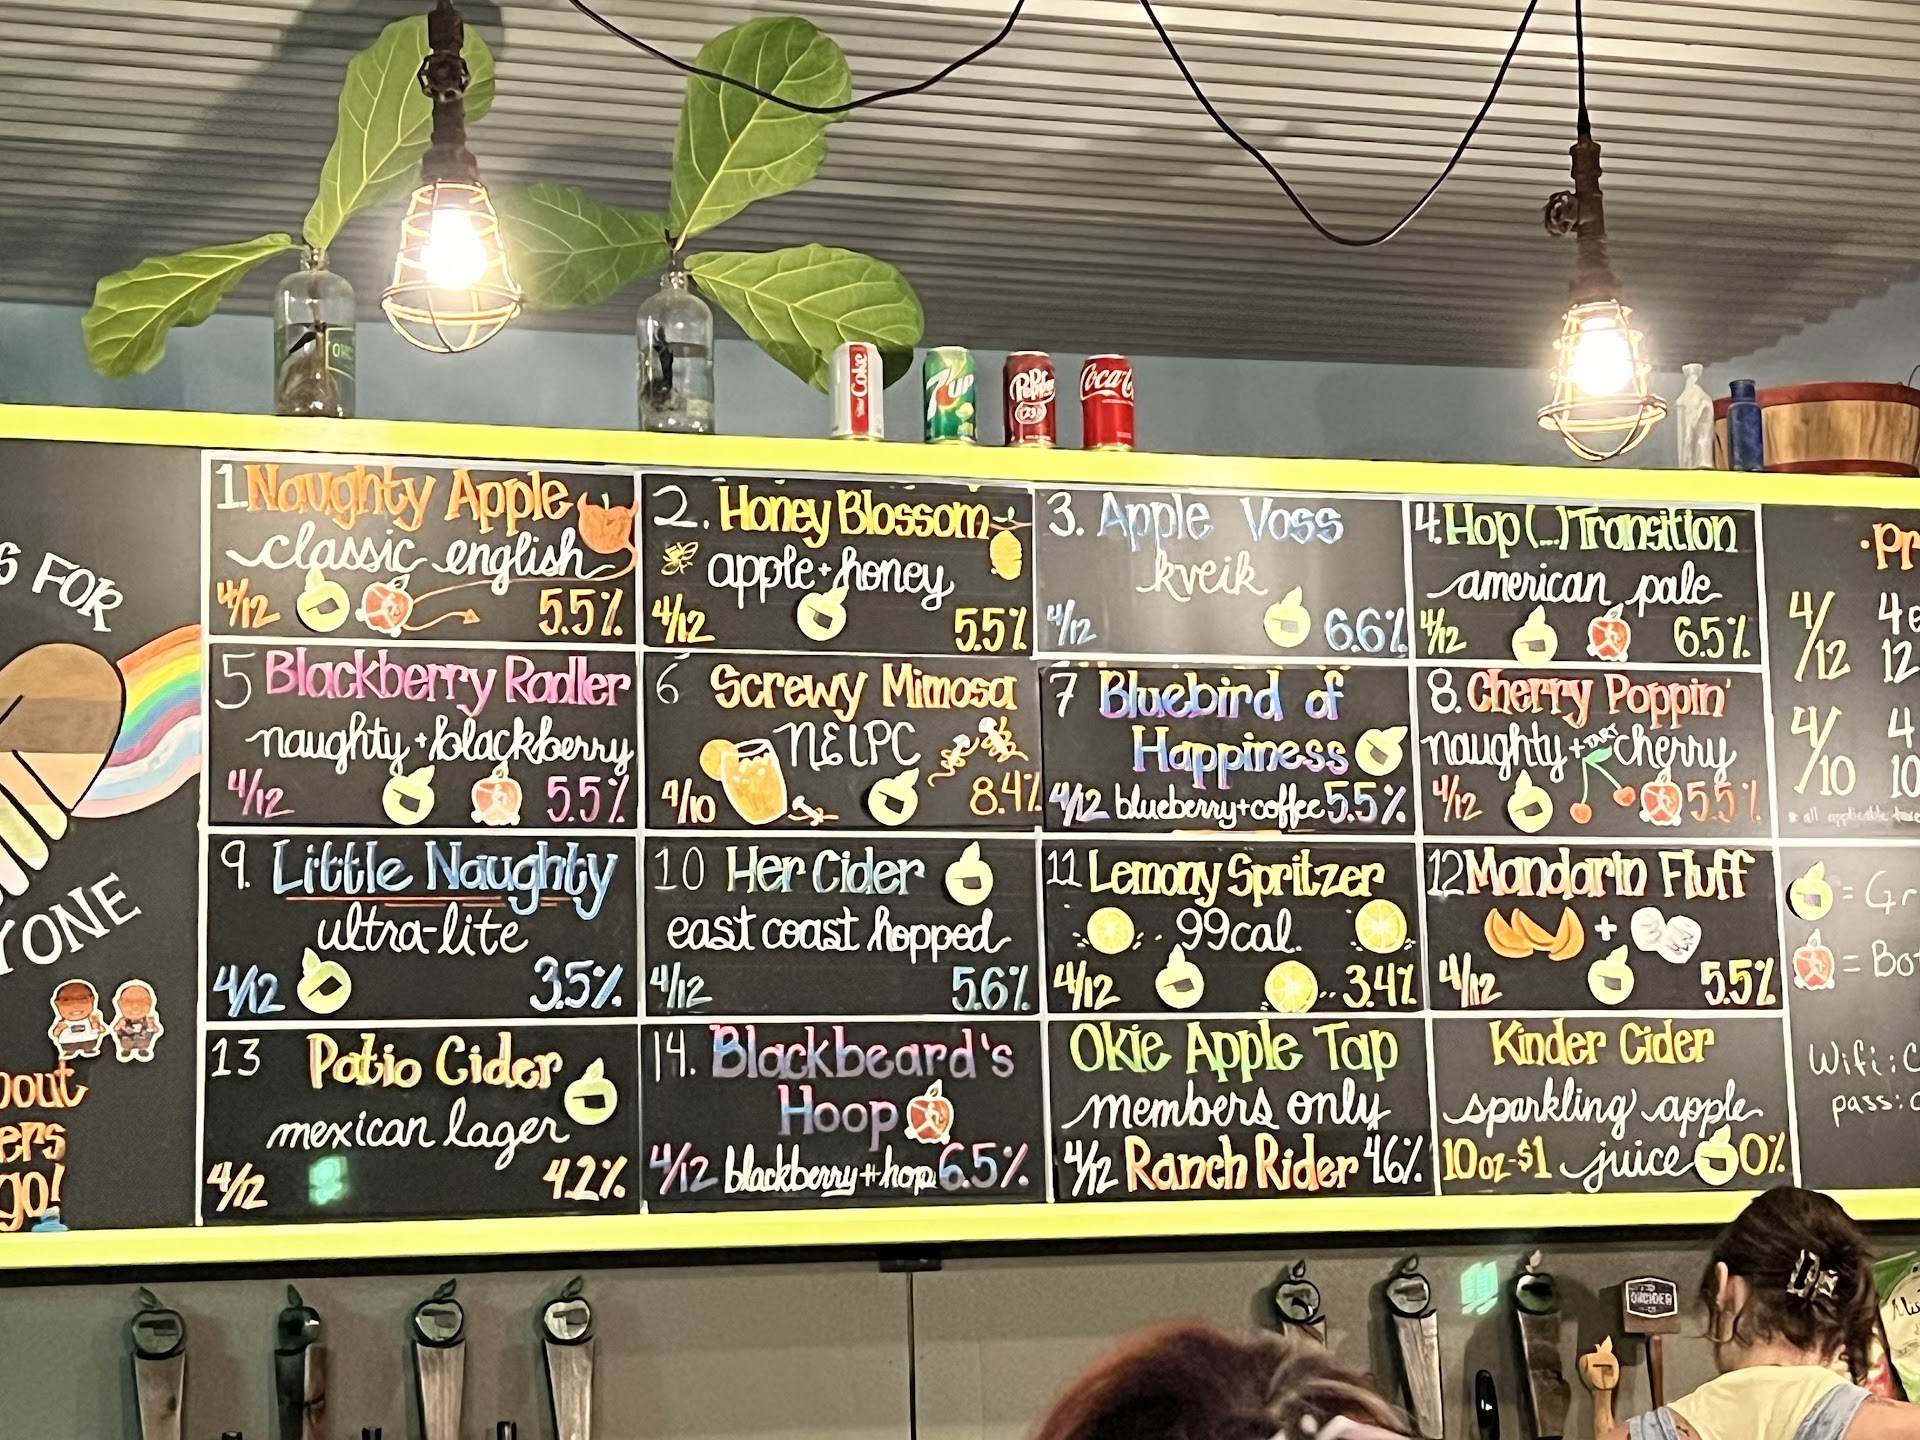 S FOR
YONE
bout
ers
go!
Coke
7up
Dr Pepper
23
Coca-C
1. Naughty Apple
classic english
4/12 5.5%
2. Honey Blossom
apple + honey
4/12 5.5%
3. Apple Voss
kveik
4/12 6.6%
4. Hop (...) Transition
american pale
4/12 6.5%
5 Blackberry Radler
naughty + blackberry
4/12 5.5%
6 Screwy Mimosa
NEIPC
4/10 8.4%
7 Bluebird of
Happiness
4/12 blueberry + coffee 5.5%
8. Cherry Poppin'
naughty + tart cherry
4/12 5.5%
9. Little Naughty
ultra-lite
4/12 3.5%
10 Her Cider
east coast hopped
4/12 5.6%
11 Lemony Spritzer
99cal.
4/12 3.4%
12 Mandarin Fluff
+
4/12 5.5%
13 Patio Cider
mexican lager
4/12 4.2%
14. Blackbeard's
Hoop
4/12 blackberry + hop 6.5%
Okie Apple Tap
members only
4/12 Ranch Rider 4.6%
Kinder Cider
sparkling apple
10oz-$1 juice 0%
·Pr
4/12 4
12
4/10 4
10
* all applicable taxe
= Gr
= Bot
Wifi: C
pass:
OKCIDER
CO